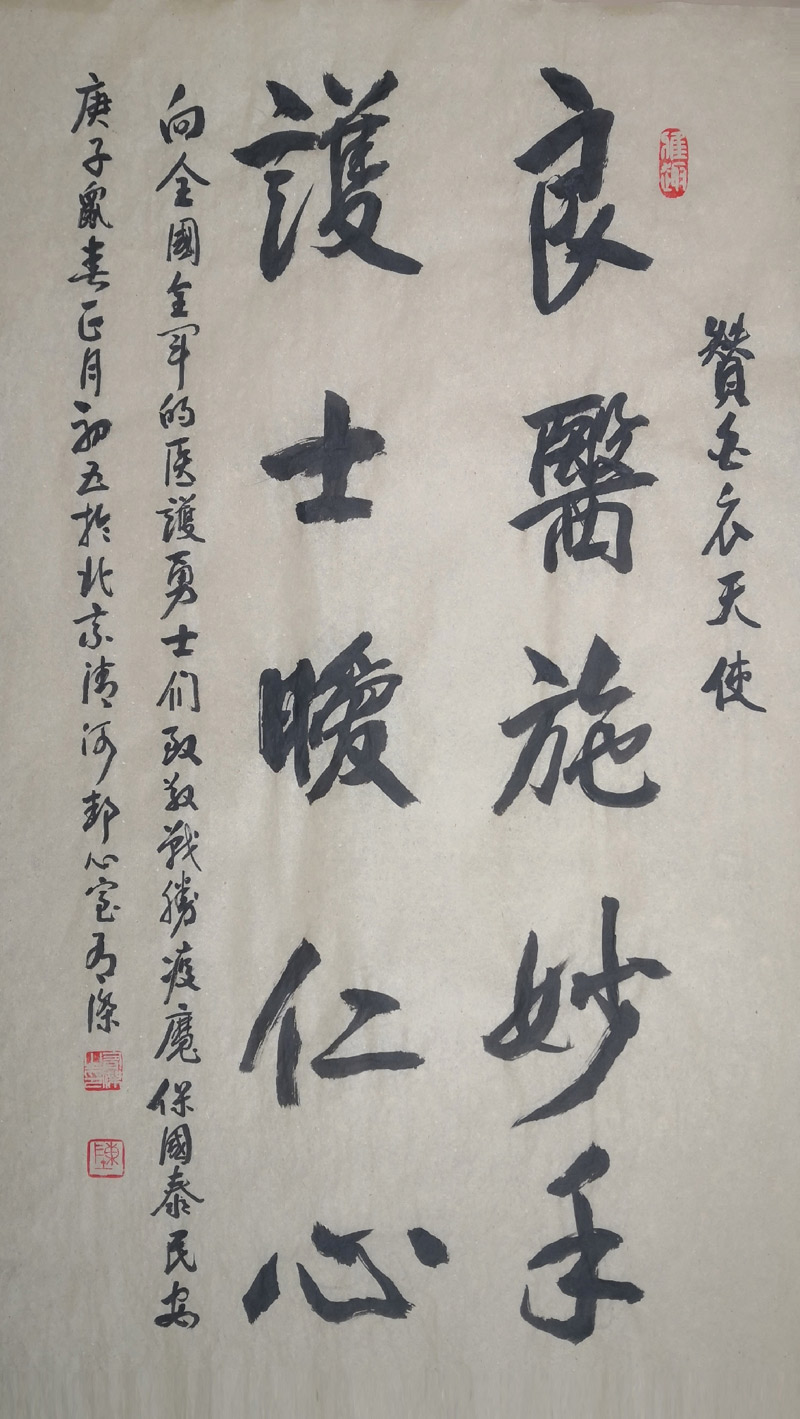 贊白衣天使
良醫施妙手
護士暖仁心
向全國全军的医護勇士们致敬战勝疫魔保國泰民安
庚子鼠春正月初五於北京清河静心室有滌
陳